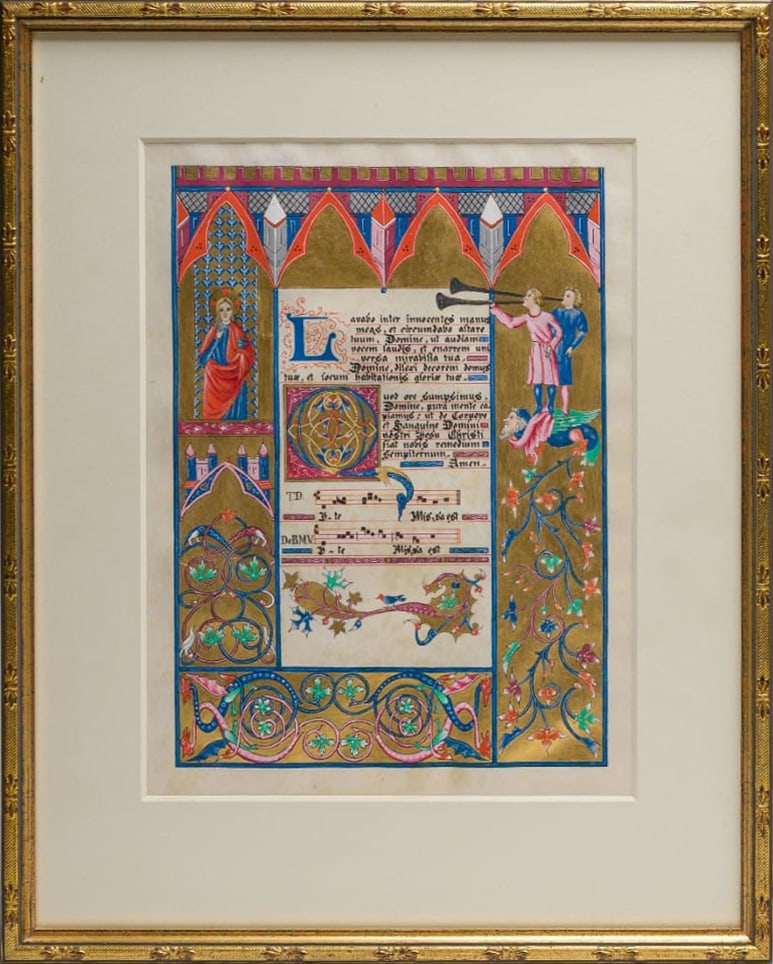 Lavabo inter innocentes manus
meas, et circumdabo altare
tuum, Domine, ut audiam
vocem laudis, et enarrem uni
versa mirabilia tua.
Domine, dilexi decorem domus
tuæ, et locum habitationis gloriæ tuæ.
Quod ore sumpsimus,
Domine, pura mente ca
piamus: ut de Corpore
et Sanguine Domini
nostri Jesu Christi
fiat nobis remedium
sempiternum.
Amen.
T.D.
I - te Missa est
De BMV
I - te Missa est